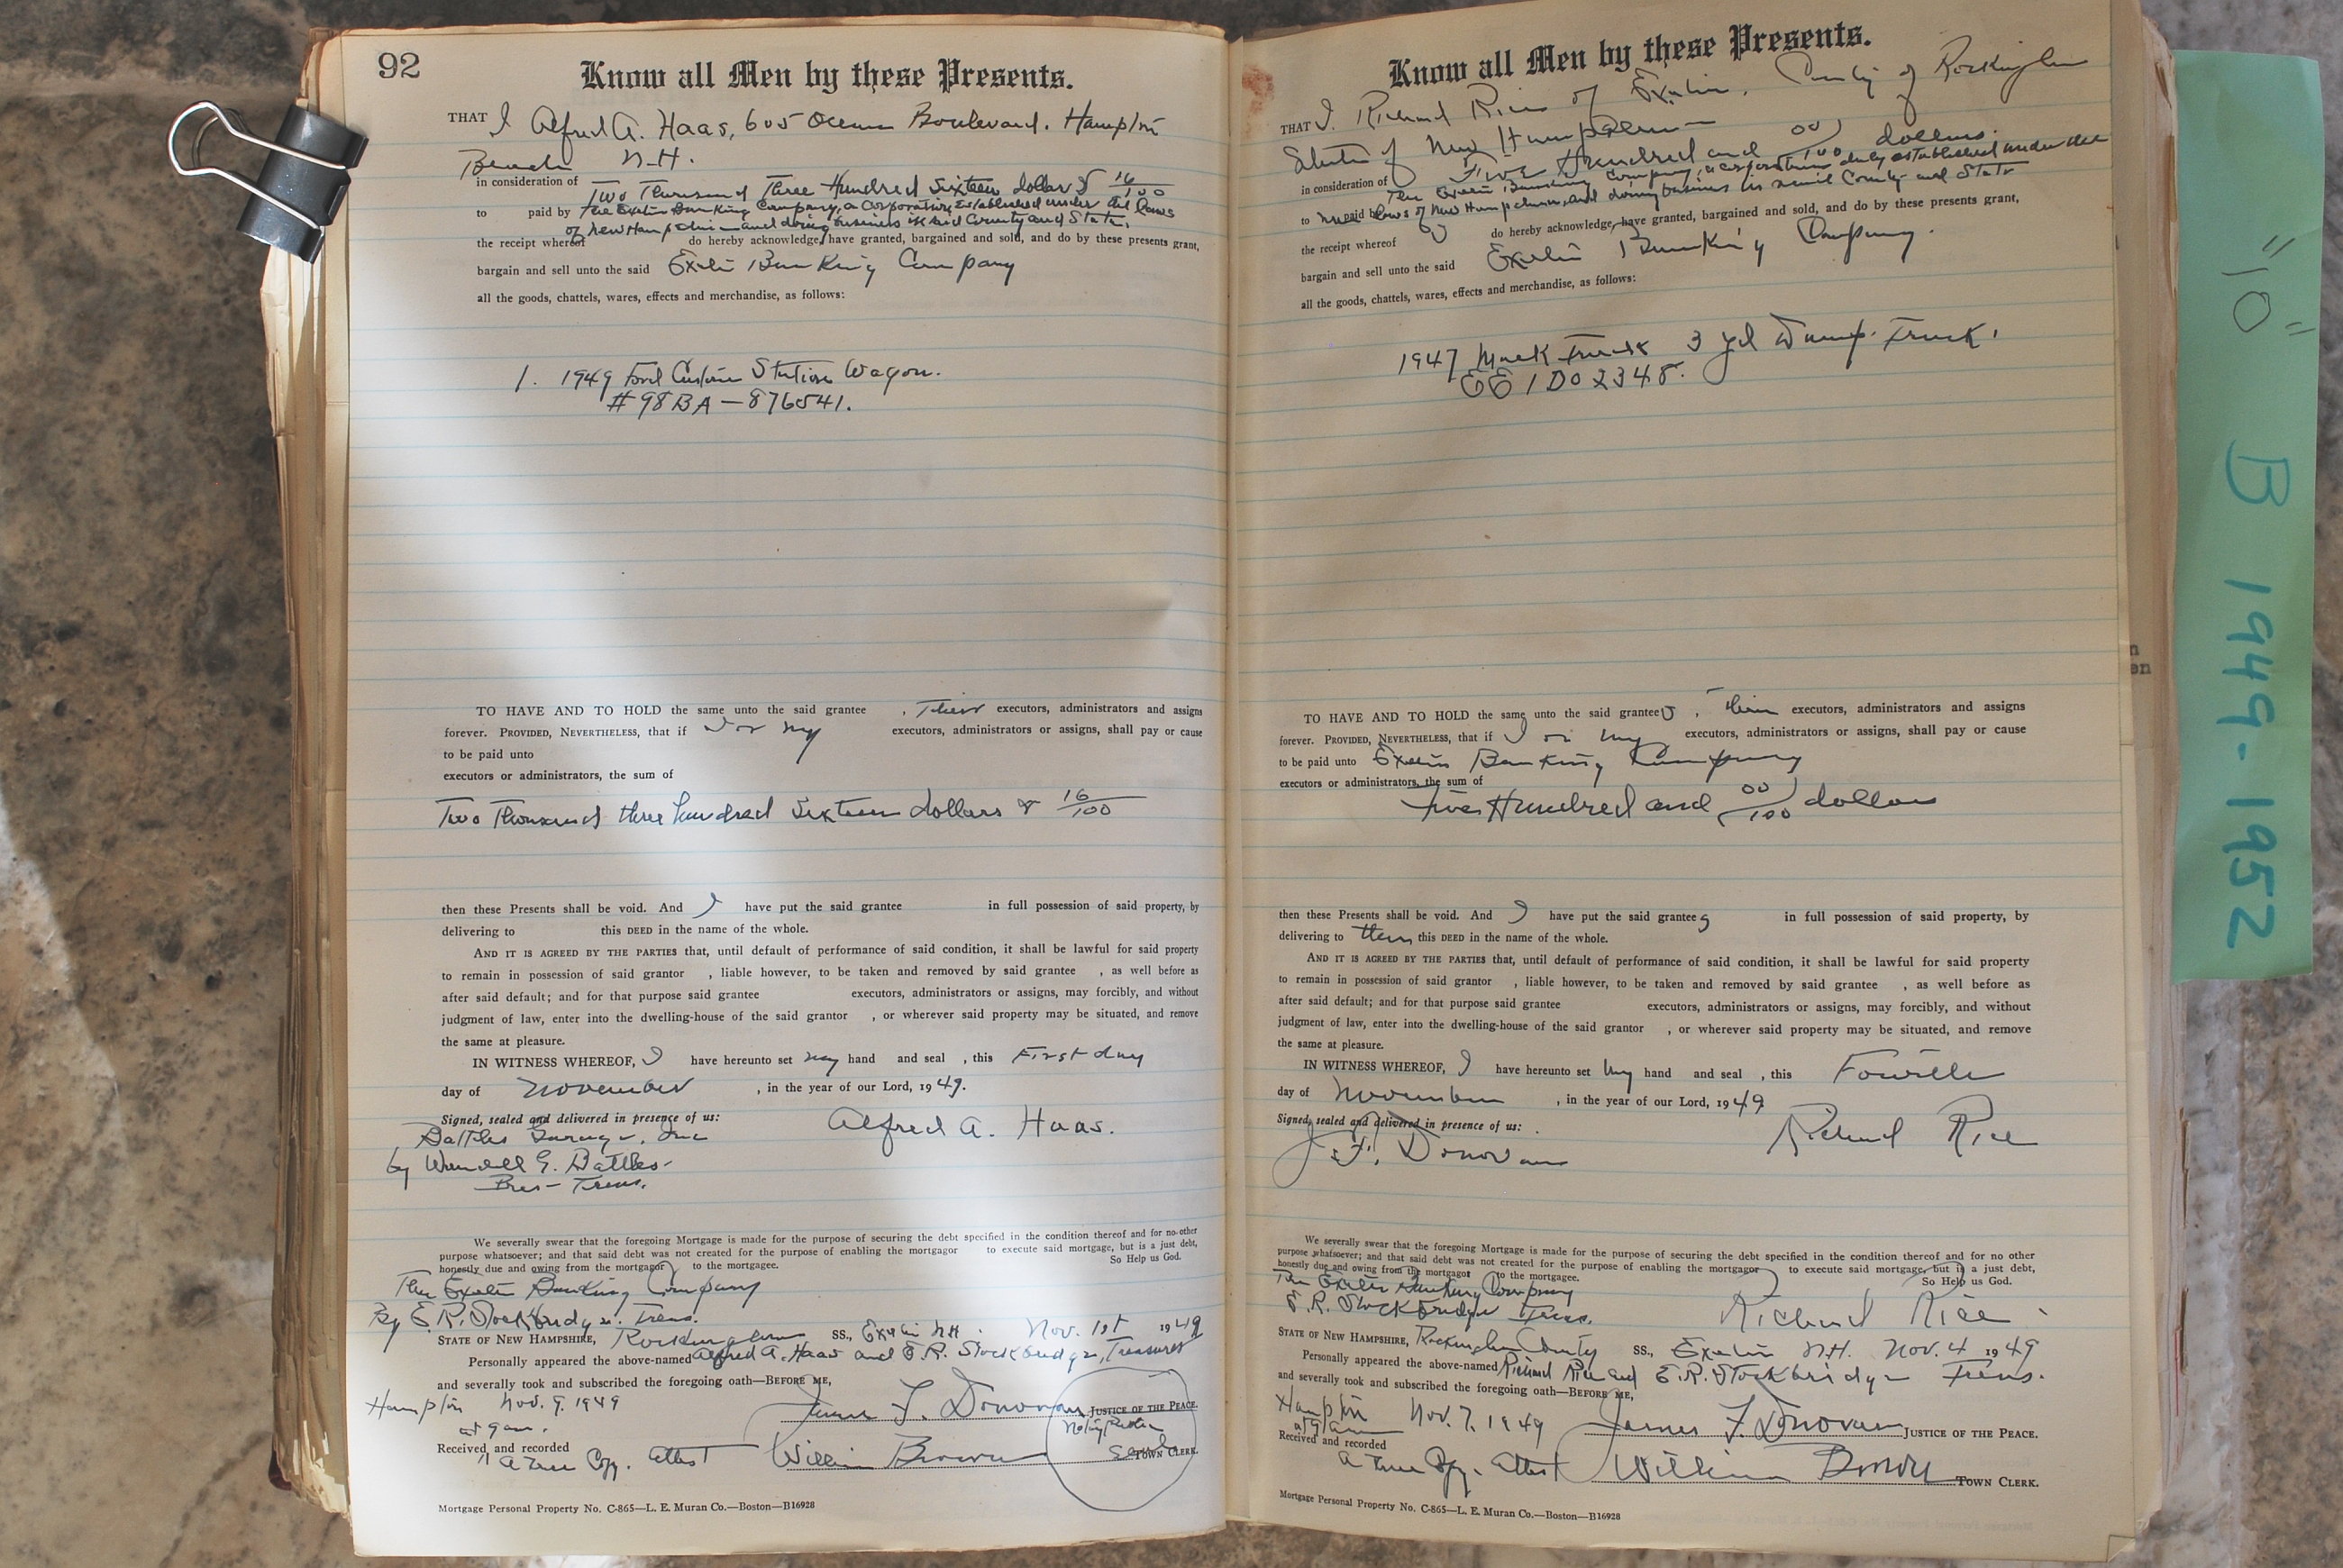 92
Know all Men by these Presents.
THAT I Alfred A. Haas, 605 Ocean Boulevard, Hampton
Beach N.H.
in consideration of Two Thousand Three Hundred Sixteen dollars & 16/100
to paid by the Exeter Banking Company, a Corporation, Established under the laws
of New Hampshire and doing business in said County and State.
the receipt whereof do hereby acknowledge, have granted, bargained and sold, and do by these presents grant,
bargain and sell unto the said Exeter Banking Company
all the goods, chattels, wares, effects and merchandise, as follows:
1. 1949 Ford Custom Station Wagon.
#98BA-876541.
TO HAVE AND TO HOLD the same unto the said grantee , Their executors, administrators and assigns
forever. PROVIDED, NEVERTHELESS, that if I or my executors, administrators or assigns, shall pay or cause
to be paid unto
executors or administrators, the sum of
Two Thousand three hundred Sixteen dollars & 16/100
then these Presents shall be void. And I have put the said grantee in full possession of said property, by
delivering to this DEED in the name of the whole.
AND IT IS AGREED BY THE PARTIES that, until default of performance of said condition, it shall be lawful for said property
to remain in possession of said grantor , liable however, to be taken and removed by said grantee , as well before as
after said default; and for that purpose said grantee executors, administrators or assigns, may forcibly, and without
judgment of law, enter into the dwelling-house of the said grantor , or wherever said property may be situated, and remove
the same at pleasure.
IN WITNESS WHEREOF, I have hereunto set my hand and seal , this First day
day of November , in the year of our Lord, 1949.
Signed, sealed and delivered in presence of us:
Alfred A. Haas.
Battles Garage, Inc
by Wendell G. Battles
Pres-Treas.
We severally swear that the foregoing Mortgage is made for the purpose of securing the debt specified in the condition thereof and for no other
purpose whatsoever; and that said debt was not created for the purpose of enabling the mortgagor to execute said mortgage, but is a just debt,
honestly due and owing from the mortgagor to the mortgagee. So Help us God.
The Exeter Banking Company
By E. R. Stockbridge. Treas.
STATE OF NEW HAMPSHIRE, Rockingham SS., Exeter N.H. Nov. 1st 1949
Personally appeared the above-named Alfred A. Haas and E.R. Stockbridge, Treasurer
and severally took and subscribed the foregoing oath—BEFORE ME,
Hampton Nov. 9, 1949
James F. Donovan JUSTICE OF THE PEACE.
at 9 am.
Notary Public
Seal
Received and recorded
A True Copy. Attest William Brown TOWN CLERK.
Mortgage Personal Property No. C-865—L. E. Muran Co.—Boston—B16928
Know all Men by these Presents.
THAT I, Richard Rice of Exeter, County of Rockingham
State of New Hampshire
in consideration of Five Hundred and 00/100 dollars.
The Exeter Banking Company, a corporation duly established under the
to me paid by laws of New Hampshire, and doing business in said County and State
the receipt whereof do hereby acknowledge, have granted, bargained and sold, and do by these presents grant,
bargain and sell unto the said Exeter Banking Company.
all the goods, chattels, wares, effects and merchandise, as follows:
1947 Mack Truck 3 yd Dump Truck.
EE 1D02348.
TO HAVE AND TO HOLD the same unto the said grantees , their executors, administrators and assigns
forever. PROVIDED, NEVERTHELESS, that if I or my executors, administrators or assigns, shall pay or cause
to be paid unto Exeter Banking Company
executors or administrators, the sum of
Five Hundred and 00/100 dollars
then these Presents shall be void. And I have put the said grantees in full possession of said property, by
delivering to them this DEED in the name of the whole.
AND IT IS AGREED BY THE PARTIES that, until default of performance of said condition, it shall be lawful for said property
to remain in possession of said grantor , liable however, to be taken and removed by said grantee , as well before as
after said default; and for that purpose said grantee executors, administrators or assigns, may forcibly, and without
judgment of law, enter into the dwelling-house of the said grantor , or wherever said property may be situated, and remove
the same at pleasure.
IN WITNESS WHEREOF, I have hereunto set my hand and seal , this Fourth
day of November , in the year of our Lord, 1949
Signed, sealed and delivered in presence of us:
Richard Rice
J. F. Donovan
We severally swear that the foregoing Mortgage is made for the purpose of securing the debt specified in the condition thereof and for no other
purpose whatsoever; and that said debt was not created for the purpose of enabling the mortgagor to execute said mortgage, but is a just debt,
honestly due and owing from the mortgagor to the mortgagee. So Help us God.
The Exeter Banking Company
E.R. Stockbridge Treas.
Richard Rice
STATE OF NEW HAMPSHIRE, Rockingham County SS., Exeter N.H. Nov. 4 1949
Personally appeared the above-named Richard Rice and E.R. Stockbridge Treas.
and severally took and subscribed the foregoing oath—BEFORE ME,
Hampton Nov. 7, 1949
James F. Donovan JUSTICE OF THE PEACE.
at 9 am
Received and recorded
A True Copy. Attest William Brown TOWN CLERK.
Mortgage Personal Property No. C-865—L. E. Muran Co.—Boston—B16928
"10" B 1949-1952